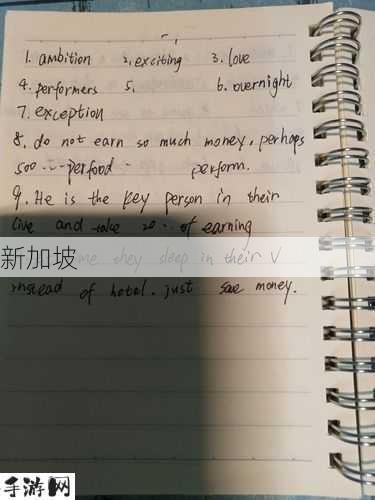 1. ambition 2. exciting 3. love
4. performers 5. 6. overnight
7. exception
8. do not earn so much money, perhaps
500 ... perform.
9. He is the key person in their
live and take 20 .. of earning
新加坡 me they sleep in their V
instead of hotel. just save money.
手游网